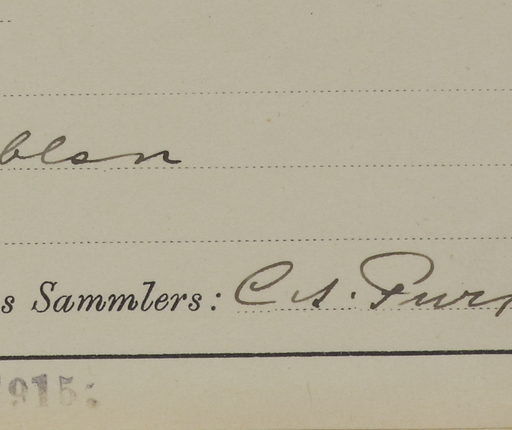 blan
s Sammlers: C. A. Purp
915: